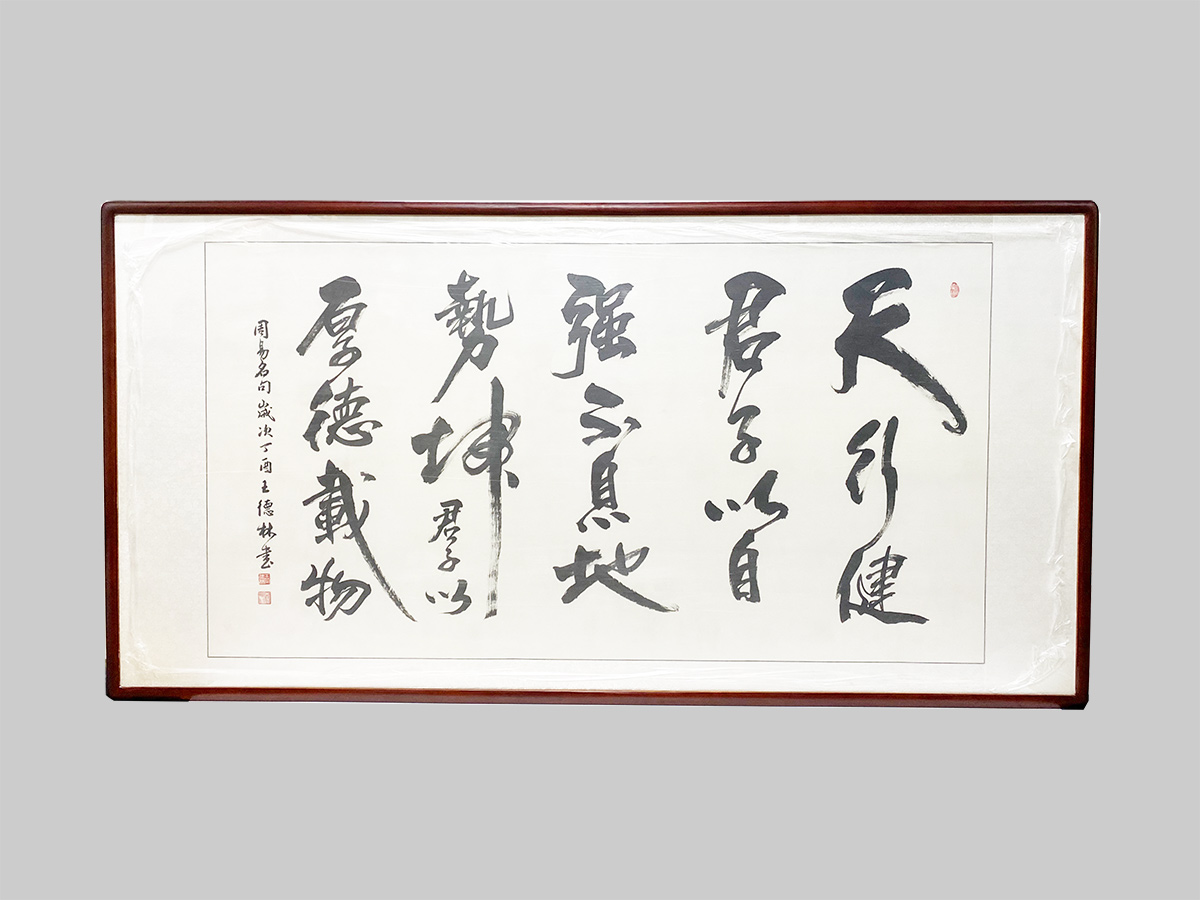 天行健
君子以自
强不息地
勢坤君子以
厚德載物
周易名句歲次丁酉王德林書